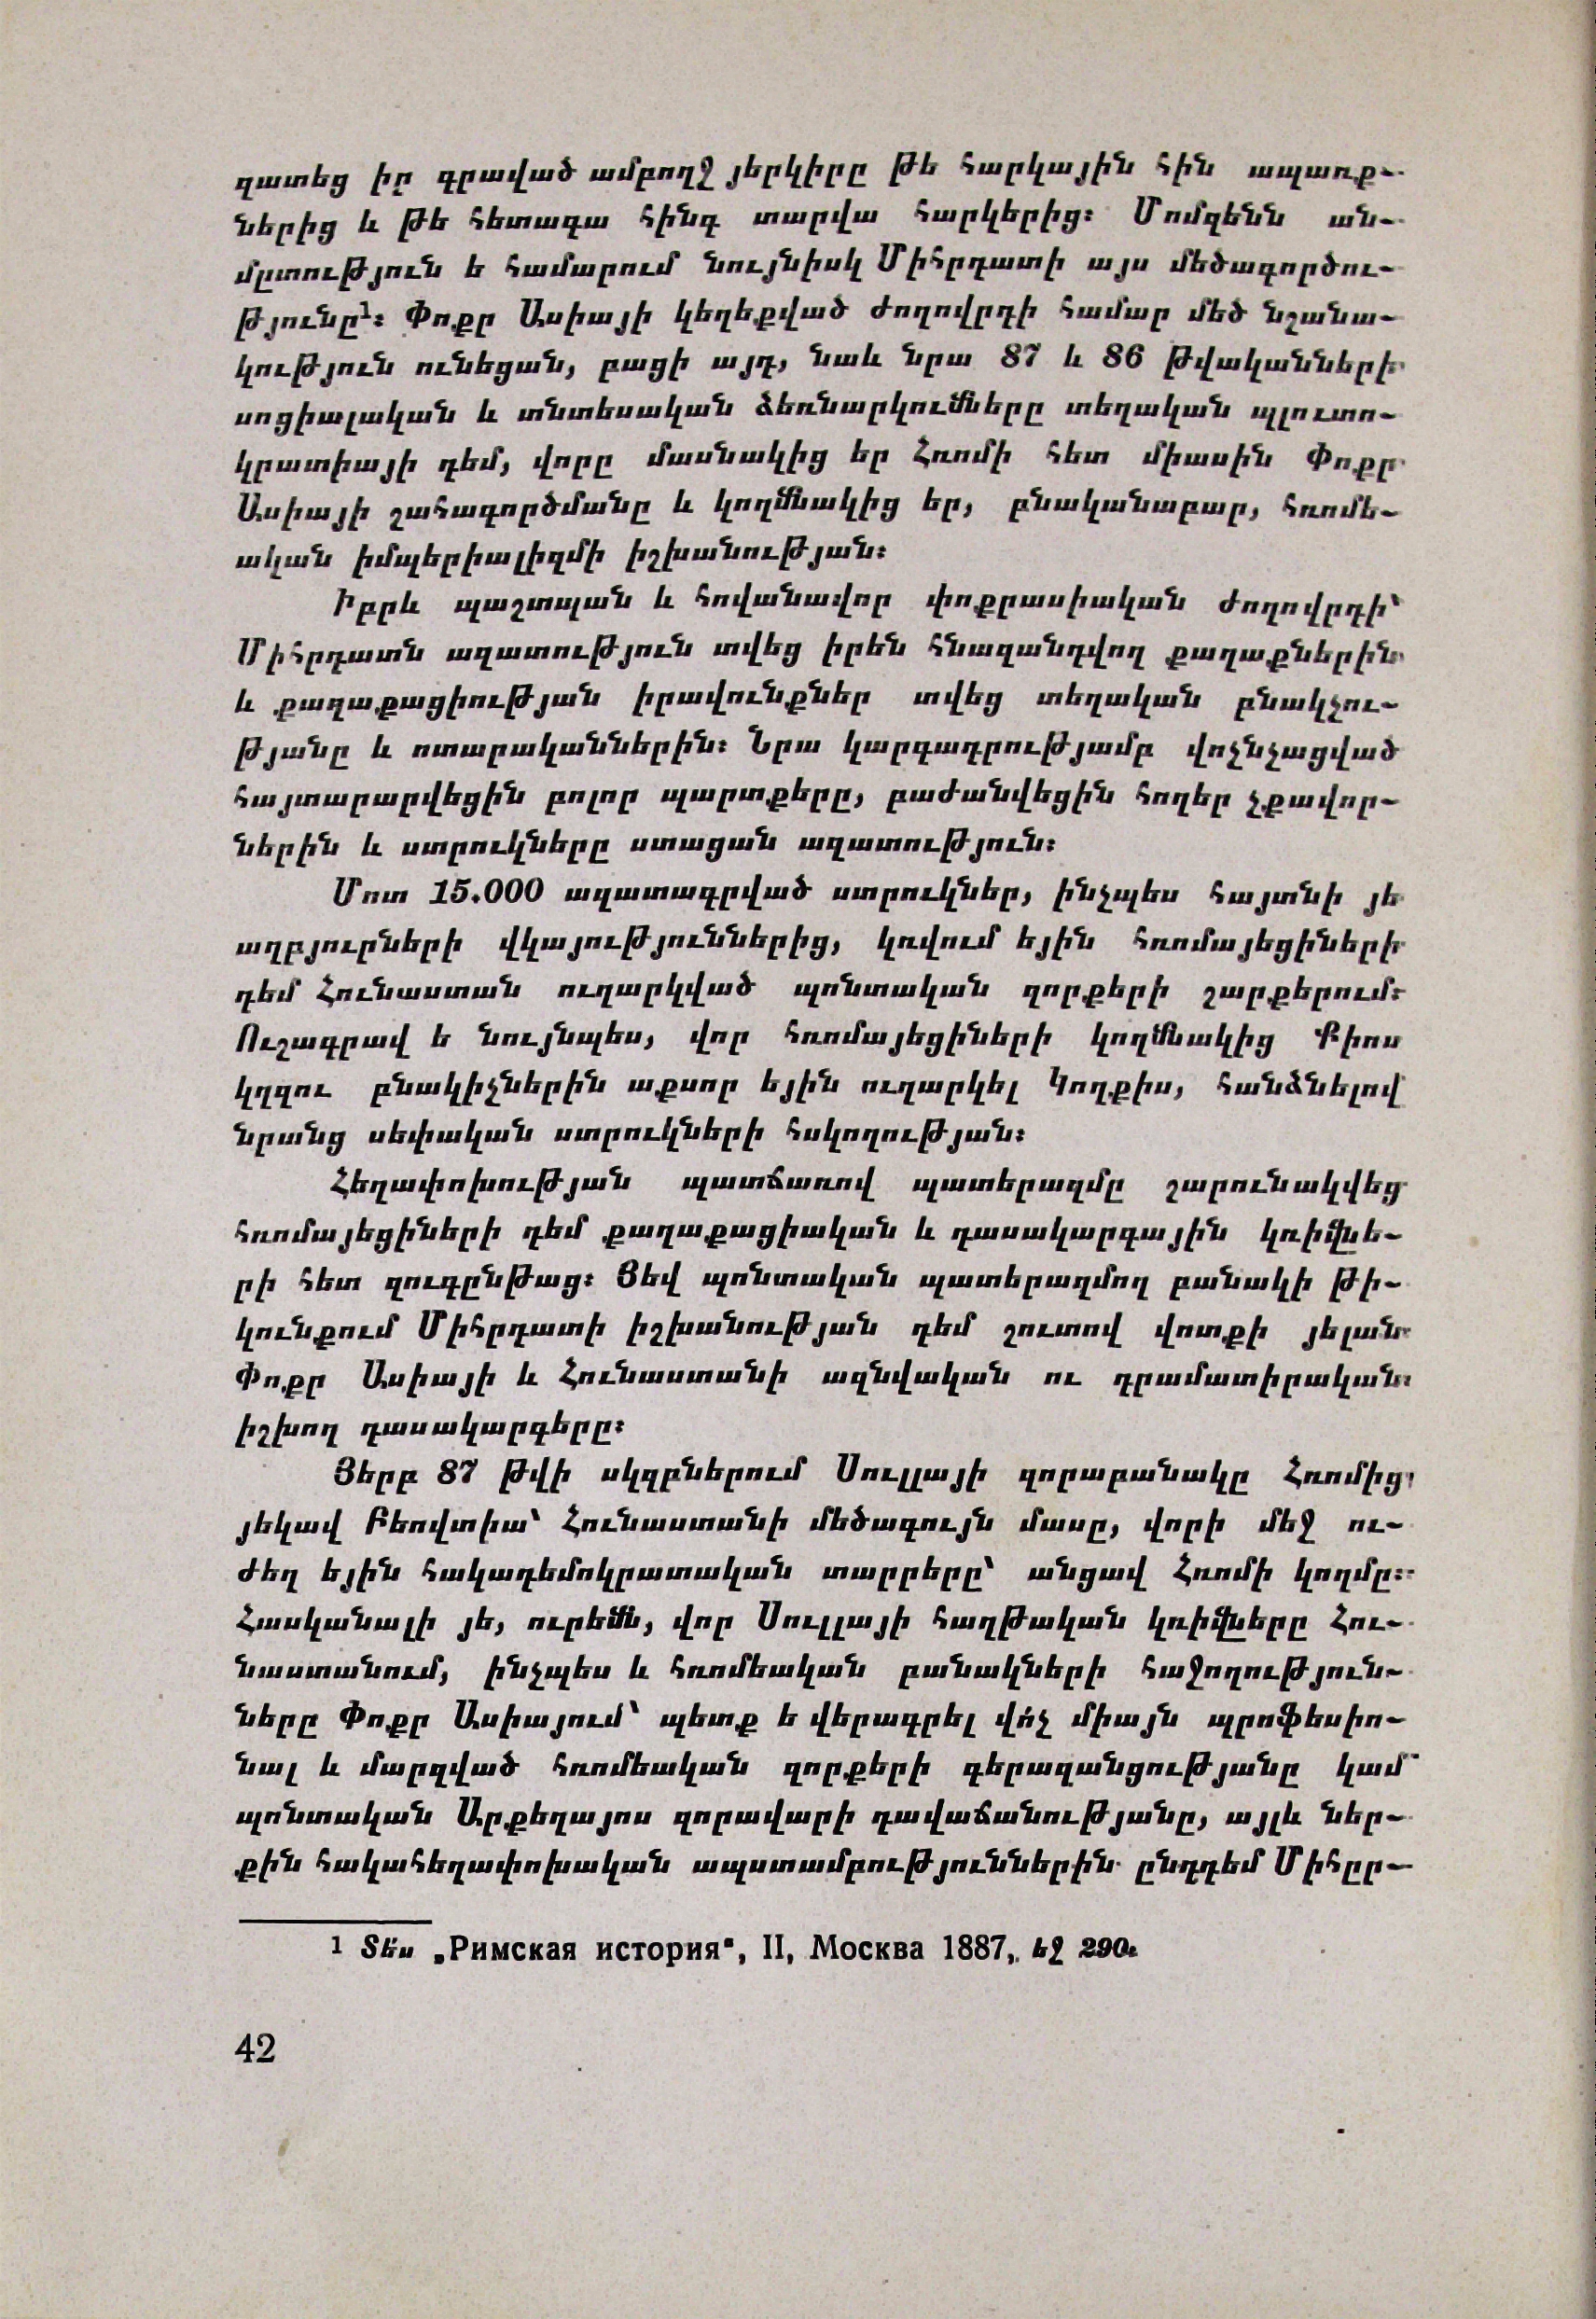 զատեց իր գրաված ամբողջ յերկիրը թե հարկային հին ապառք-
ներից և թե հետագա հինգ տարվա հարկերից։ Մոմզենն ան-
մըտություն ե համարում նույնիսկ Միհրդատի այս մեծագործու-
թյունը¹։ Փոքր Ասիայի կեղեքված ժողովրդի համար մեծ նշանա-
կություն ունեցան, բացի այդ, նաև նրա 87 և 86 թվականների
սոցիալական և տնտեսական ձեռնարկումները տեղական պլուտո-
կրատիայի դեմ, վորը մասնակից եր Հռոմի հետ միասին Փոքր
Ասիայի շահագործմանը և կողմնակից եր, բնականաբար, հռոմե-
ական իմպերիալիզմի իշխանության։
Իբրև պաշտպան և հովանավոր փոքրասիական ժողովրդի՝
Միհրդատն ազատություն տվեց իրեն հնազանդվող քաղաքներին
և քաղաքացիության իրավունքներ տվեց տեղական բնակչու-
թյանը և ոտարականներին։ Նրա կարգադրությամբ վոչնչացված
հայտարարվեցին բոլոր պարտքերը, բաժանվեցին հողեր չքավոր-
ներին և ստրուկները ստացան ազատություն։
Մոտ 15.000 ազատագրված ստրուկներ, ինչպես հայտնի յե
աղբյուրների վկայություններից, կռվում եյին հռոմայեցիների
դեմ Հունաստան ուղարկված պոնտական զորքերի շարքերում։
Ուշագրավ ե նույնպես, վոր հռոմայեցիների կողմնակից Քիոս
կղզու բնակիչներին աքսոր եյին ուղարկել Կողքիս, հանձնելով
նրանց սեփական ստրուկների հսկողության։
Հեղափոխության պատճառով պատերազմը շարունակվեց
հռոմայեցիների դեմ քաղաքացիական և դասակարգային կռիվնե-
րի հետ զուգընթաց։ Յեվ պոնտական պատերազմող բանակի թի-
կունքում Միհրդատի իշխանության դեմ շուտով վոտքի յելան
Փոքր Ասիայի և Հունաստանի ազնվական ու դրամատիրական
իշխող դասակարգերը։
Յերբ 87 թվի սկզբներում Սուլլայի զորաբանակը Հռոմից
յեկավ Բեովտիա՝ Հունաստանի մեծագույն մասը, վորի մեջ ու-
ժեղ եյին հակադեմոկրատական տարրերը՝ անցավ Հռոմի կողմը։
Հասկանալի յե, ուրեմն, վոր Սուլլայի հաղթական կռիվները Հու-
նաստանում, ինչպես և հռոմեական բանակների հաջողություն-
ները Փոքր Ասիայում՝ պետք ե վերագրել վո՛չ միայն պրոֆեսիո-
նալ և մարզված հռոմեական զորքերի գերազանցությանը կամ
պոնտական Արքեղայոս զորավարի դավաճանությանը, այլև ներ-
քին հակահեղափոխական ապստամբություններին ընդդեմ Միհըր-
1 Տե՛ս „Римская история“, II, Москва 1887, եջ 290։
42